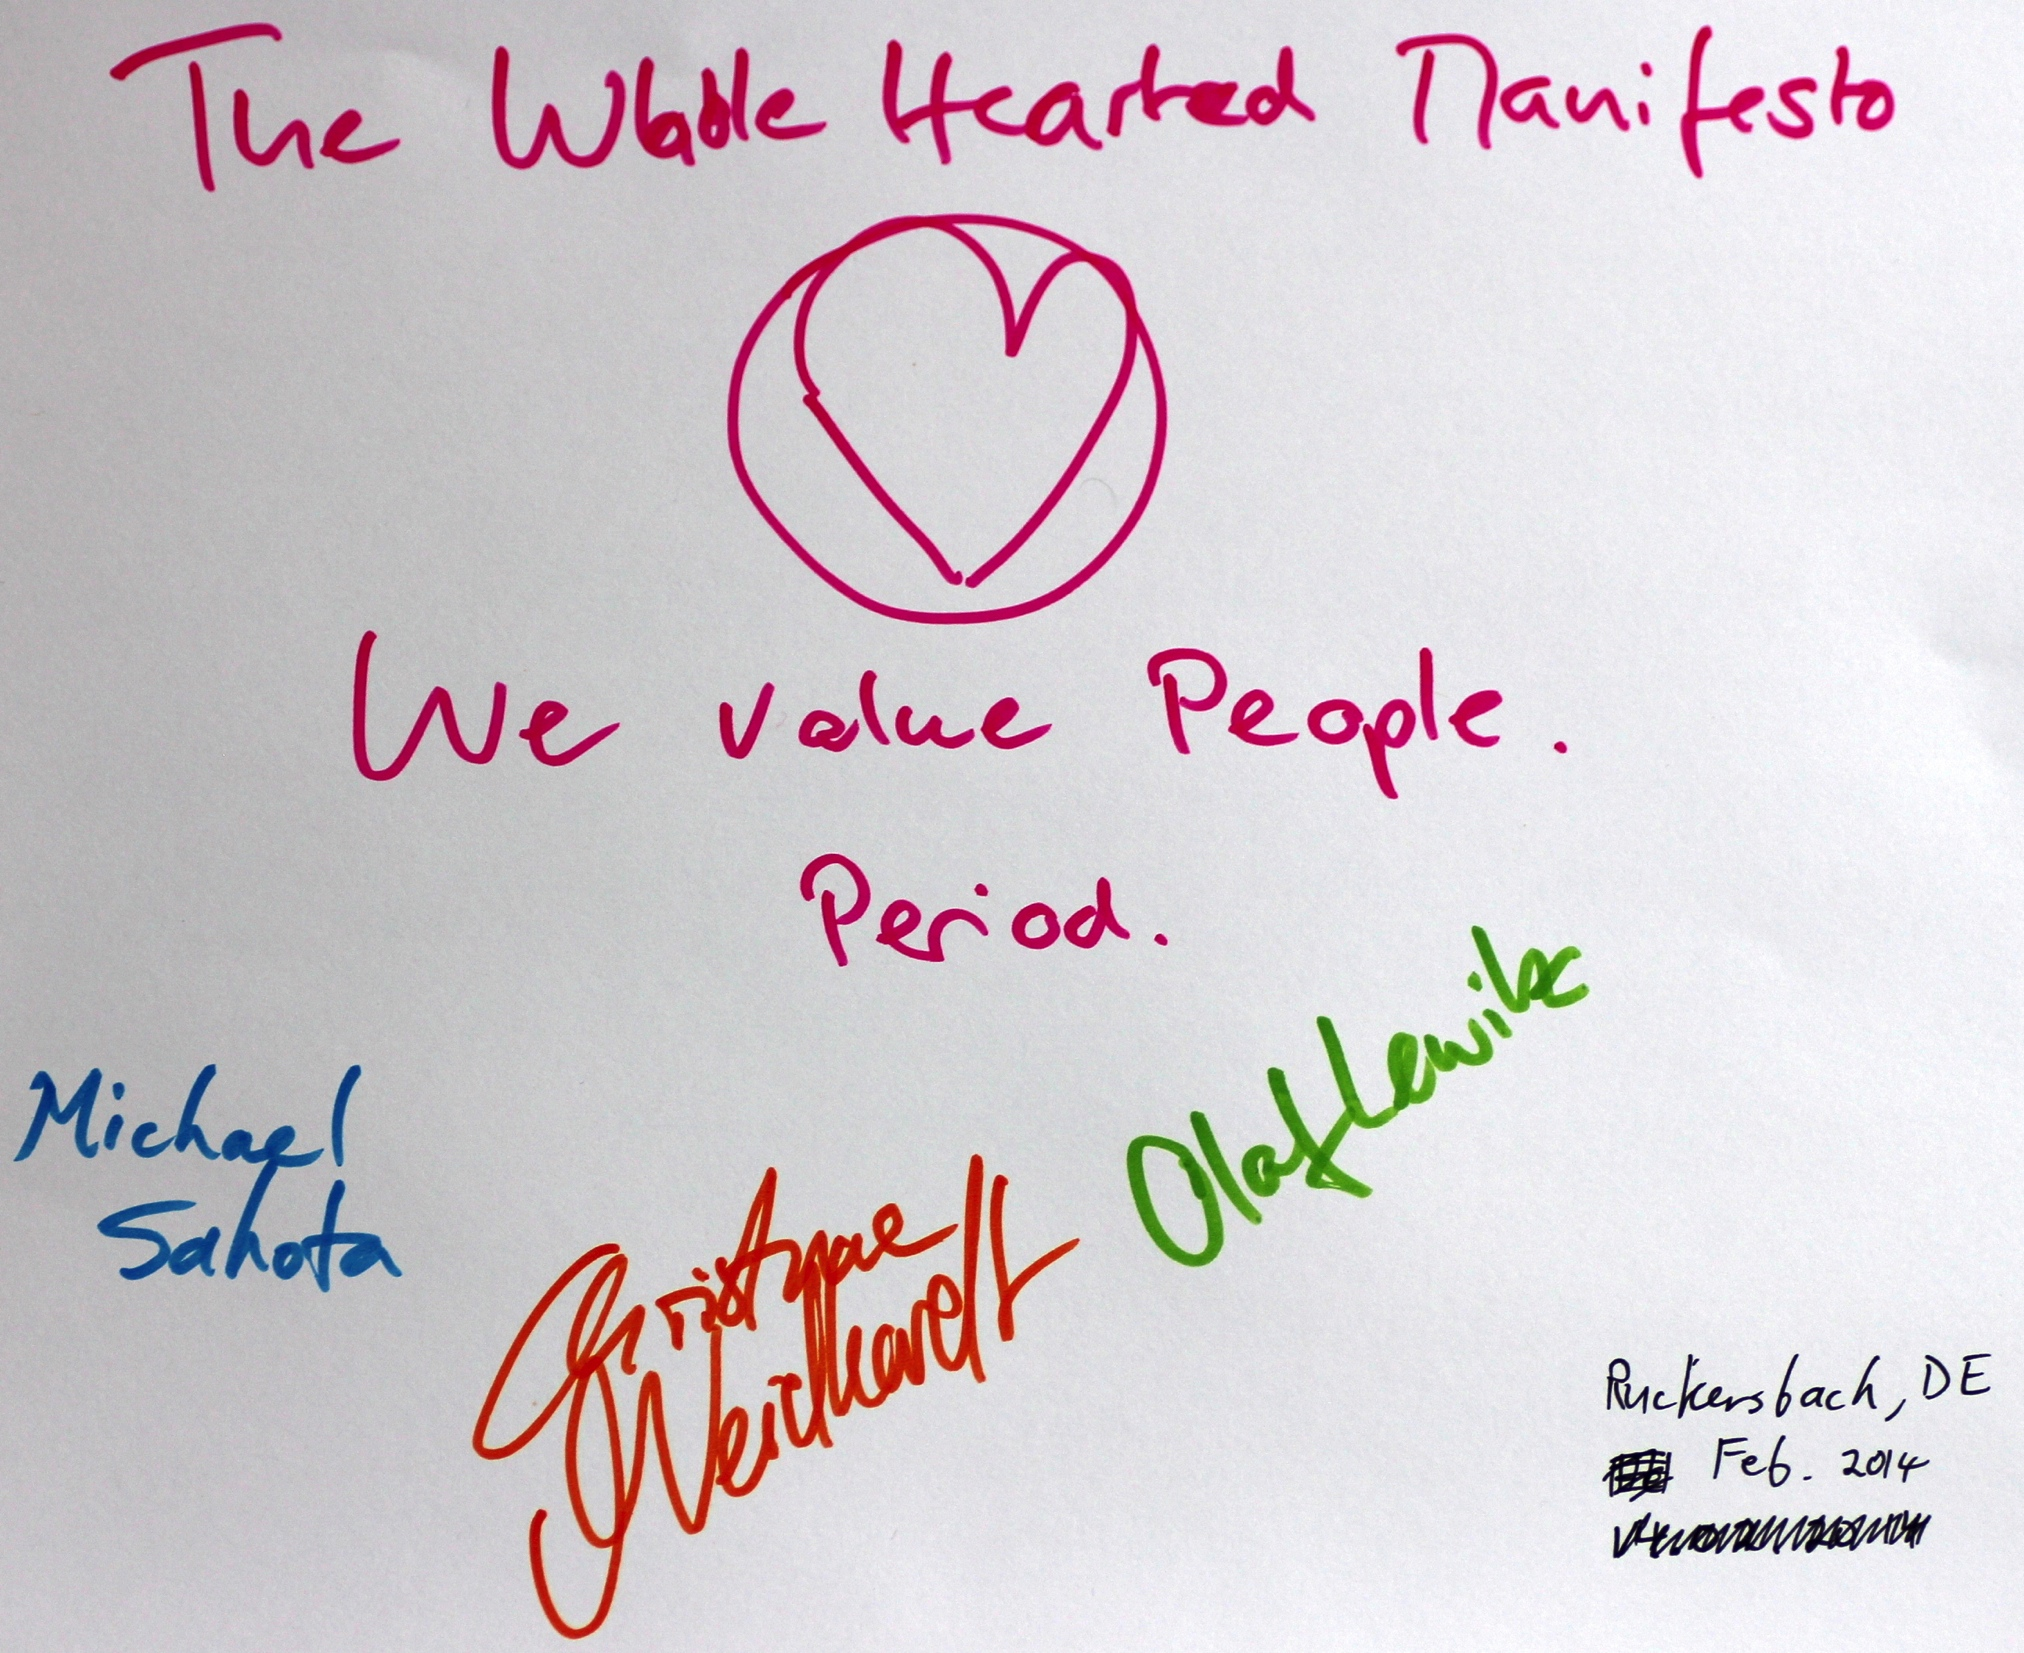 The Whole Hearted Manifesto
We value People.
Period.
Michael
Sahota
Christiane
Neidhardt
Olaf Lewitz
Ruckersbach, DE
Feb. 2014